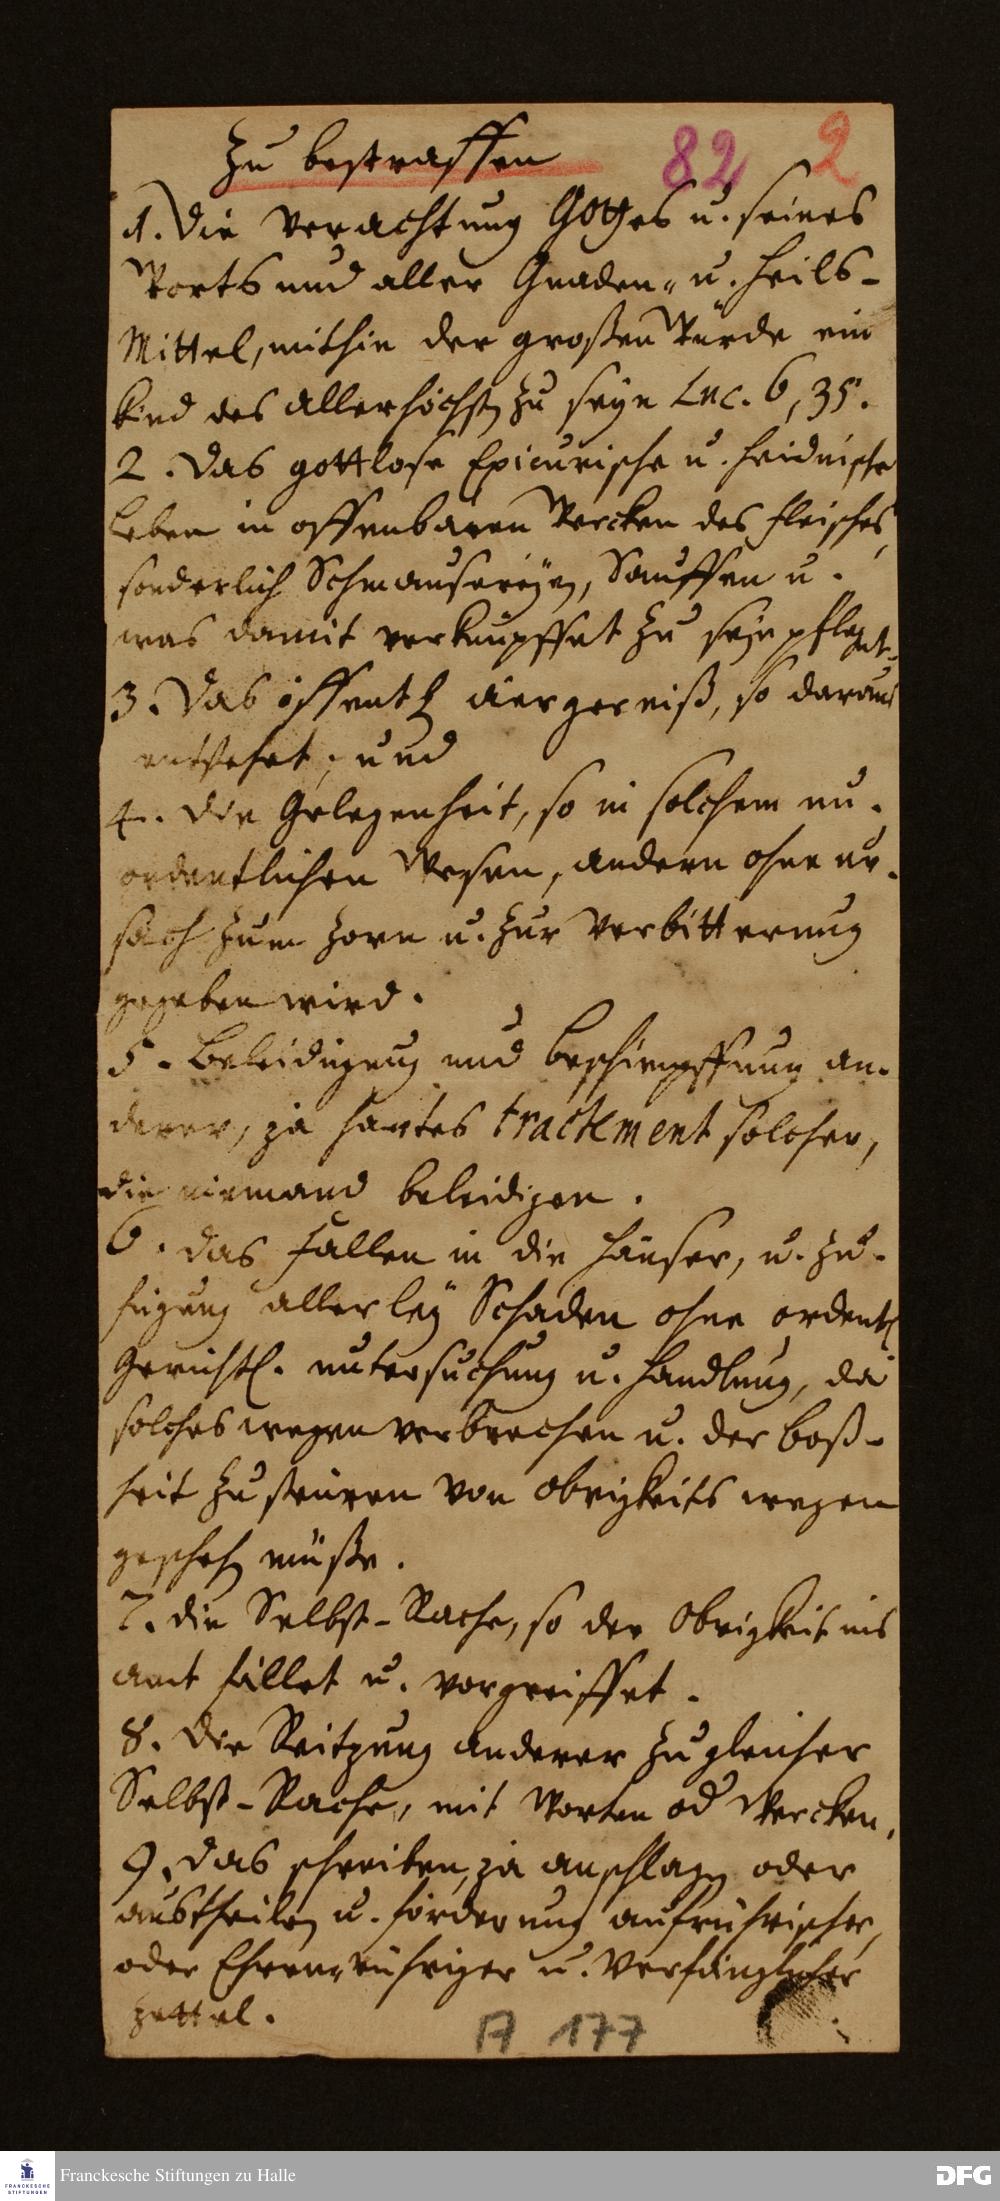 Zu bestraffen 82 2
1. Die Verachtung Gottes u. seines
Worts und aller Gnaden- u. Heils-
Mittel, mithin der großen Würde ein
Kind des Allerhöchsten zu seyn Luc. 6, 35.
2. Das gottlose Epicurische u. heidnische
Leben in offenbaren Wercken des Fleisches,
sonderlich Schmausereyen, Sauffen u.
was damit verknüpffet zu seyn pfleget.
3. Das öffentl. Aergerniß, so daraus
entstehet, und
4. Die Gelegenheit, so in solchem un-
ordentlichen Wesen, andern ohne ur-
sach zum Zorn u. zur Verbitterung
gegeben wird.
5. Beleidigung und Beschimpffung an-
derer, ja hartes tractement solcher,
die niemand beleidigen.
6. Das Fallen in die Häuser, u. Zu-
fügung allerley Schaden ohne ordentl.
Gerichtl. Untersuchung u. Handlung, da
solches wegen Verbrechen u. der Boß-
heit zu steuren von Obrigkeits wegen
geschehen müßte.
7. die Selbst-Rache, so der Obrigkeit ins
Amt fället u. vorgreiffet.
8. Die Reitzung anderer zu gleicher
Selbst-Rache, mit Worten od Wercken.
9. Das schreiben, ja anschlagen oder
austheilen u. förderung aufrührischer,
oder Ehren-rühriger u. verfänglicher
Zettel.
A 177
Franckesche Stiftungen zu Halle
DFG
FRANCKESCHE
STIFTUNGEN